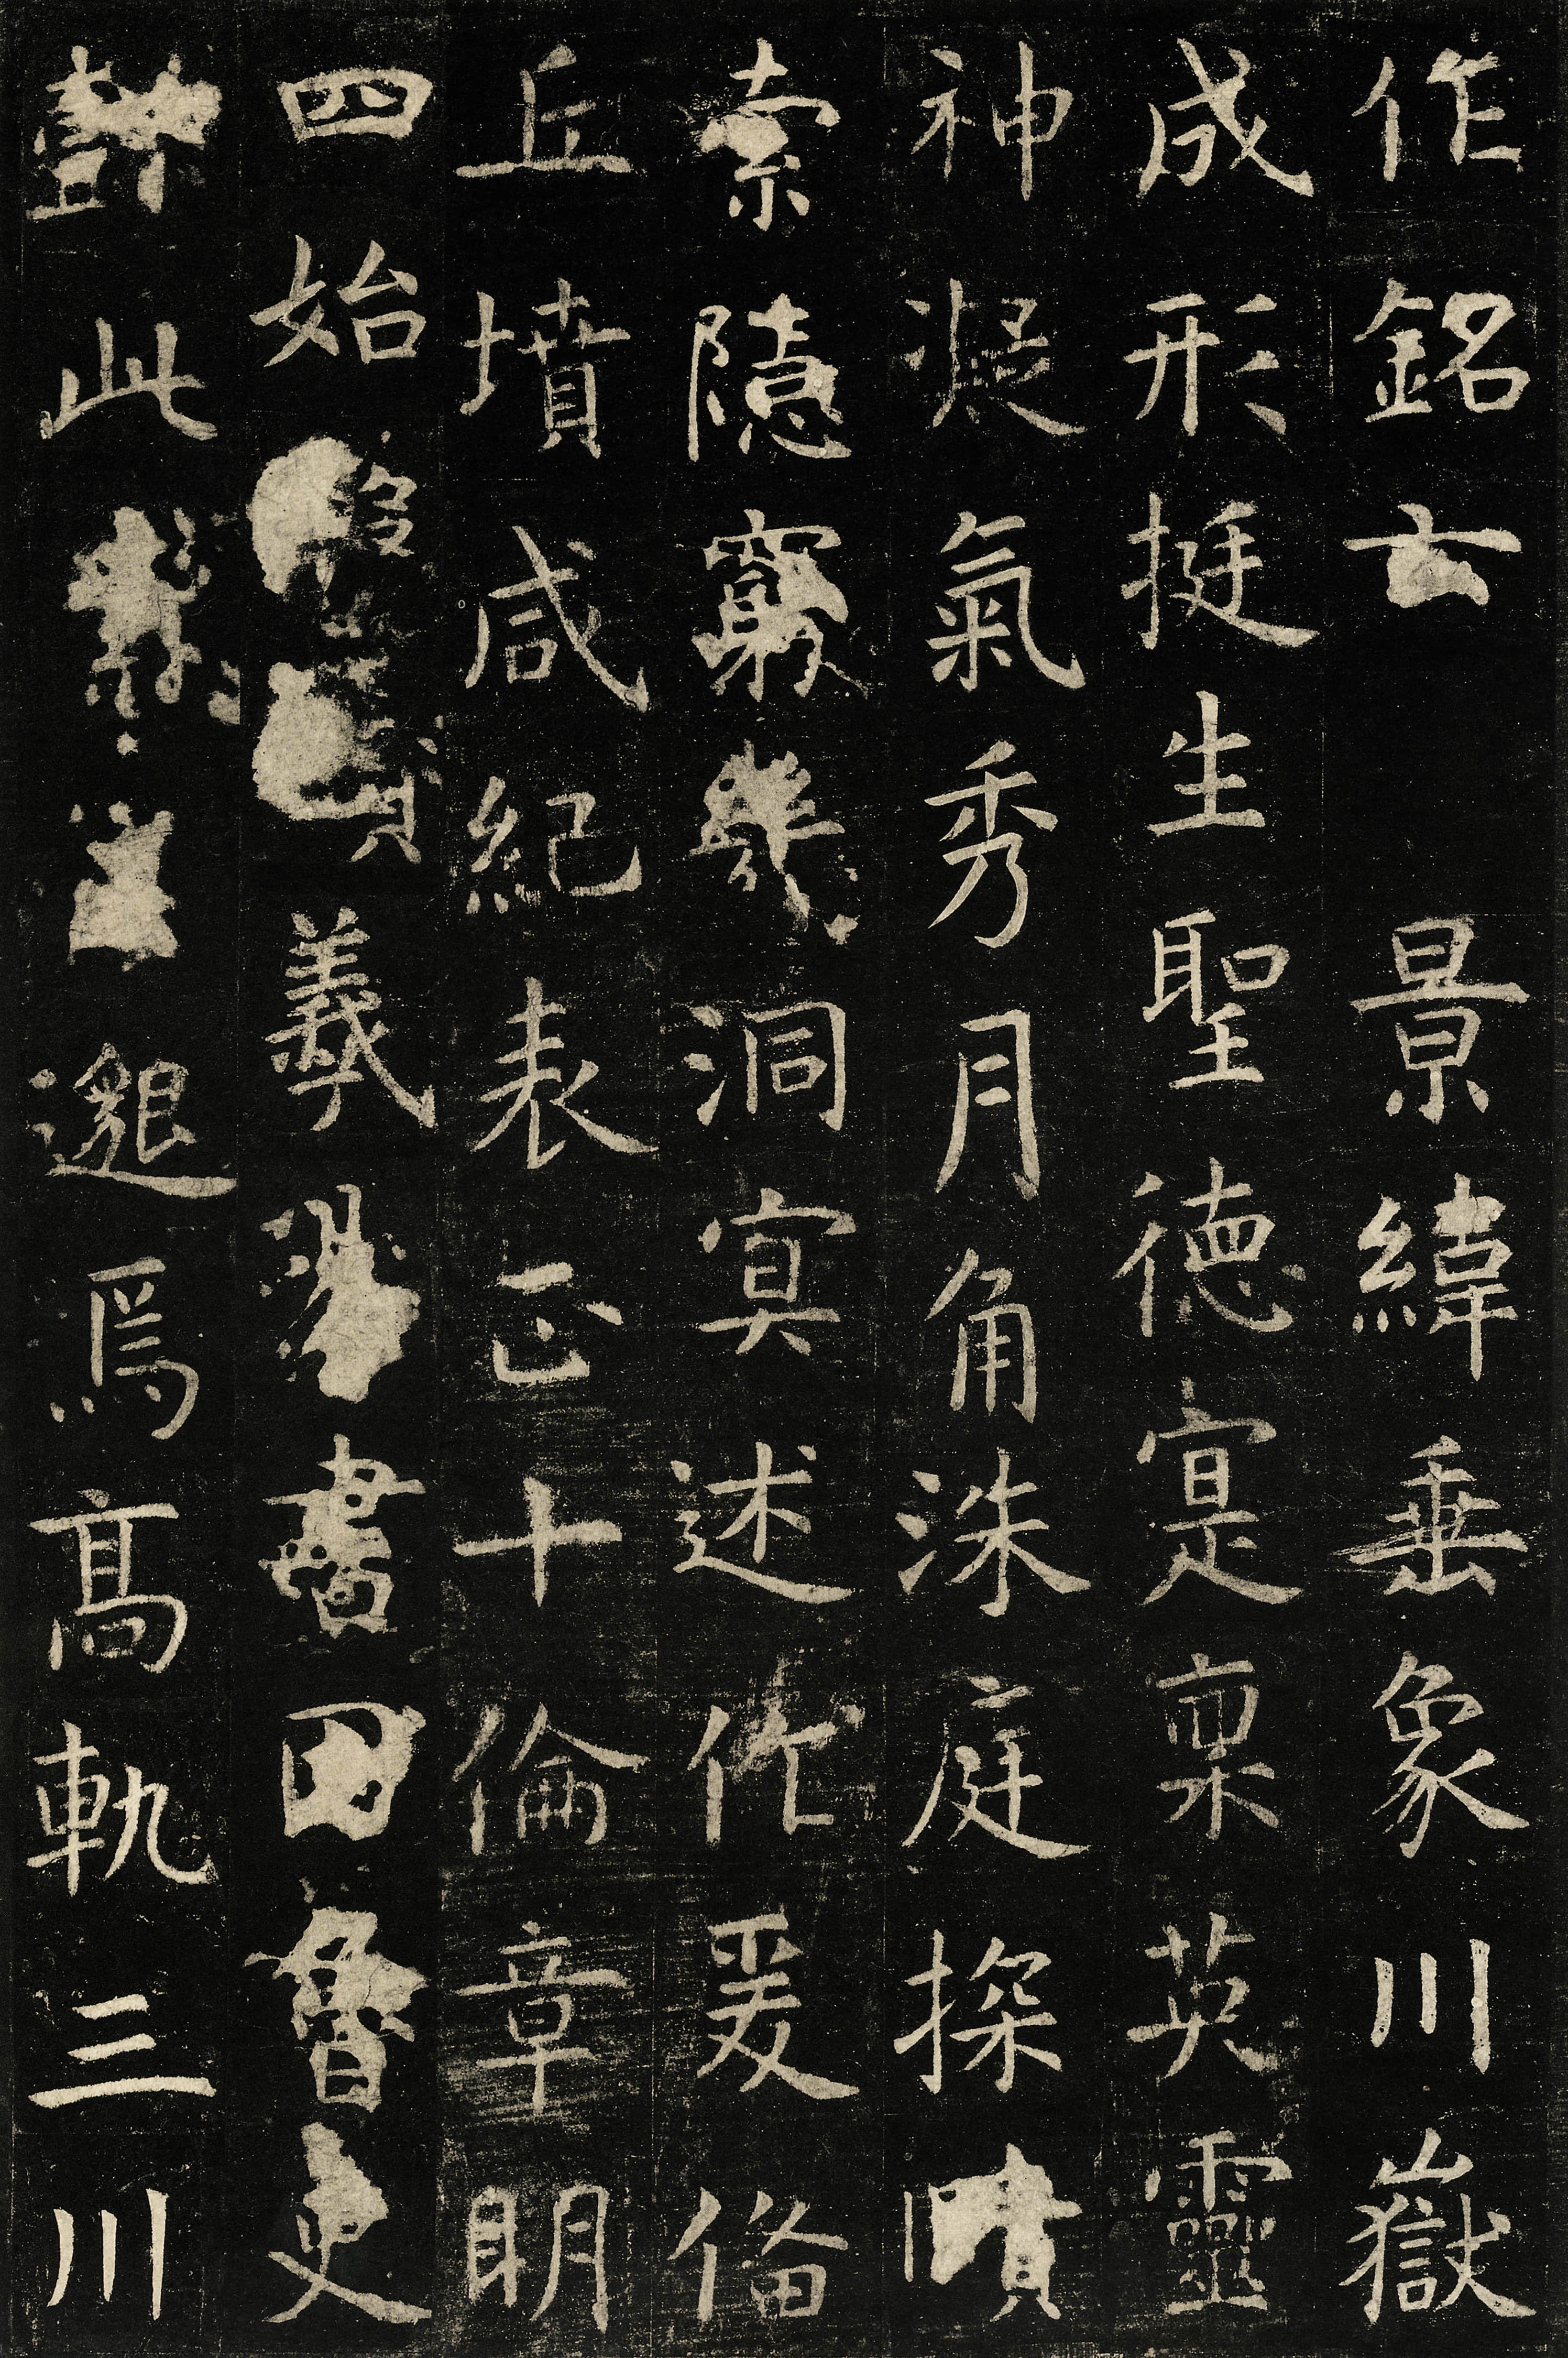 作銘云景緯垂象川嶽
成形挺生聖德寔稟英靈
神凝氣秀月角洙庭探賾
索隱窮幾洞寞述作爰俻
丘墳咸紀表正十倫章明
四始羲書魯吏
此邈焉高軌三川